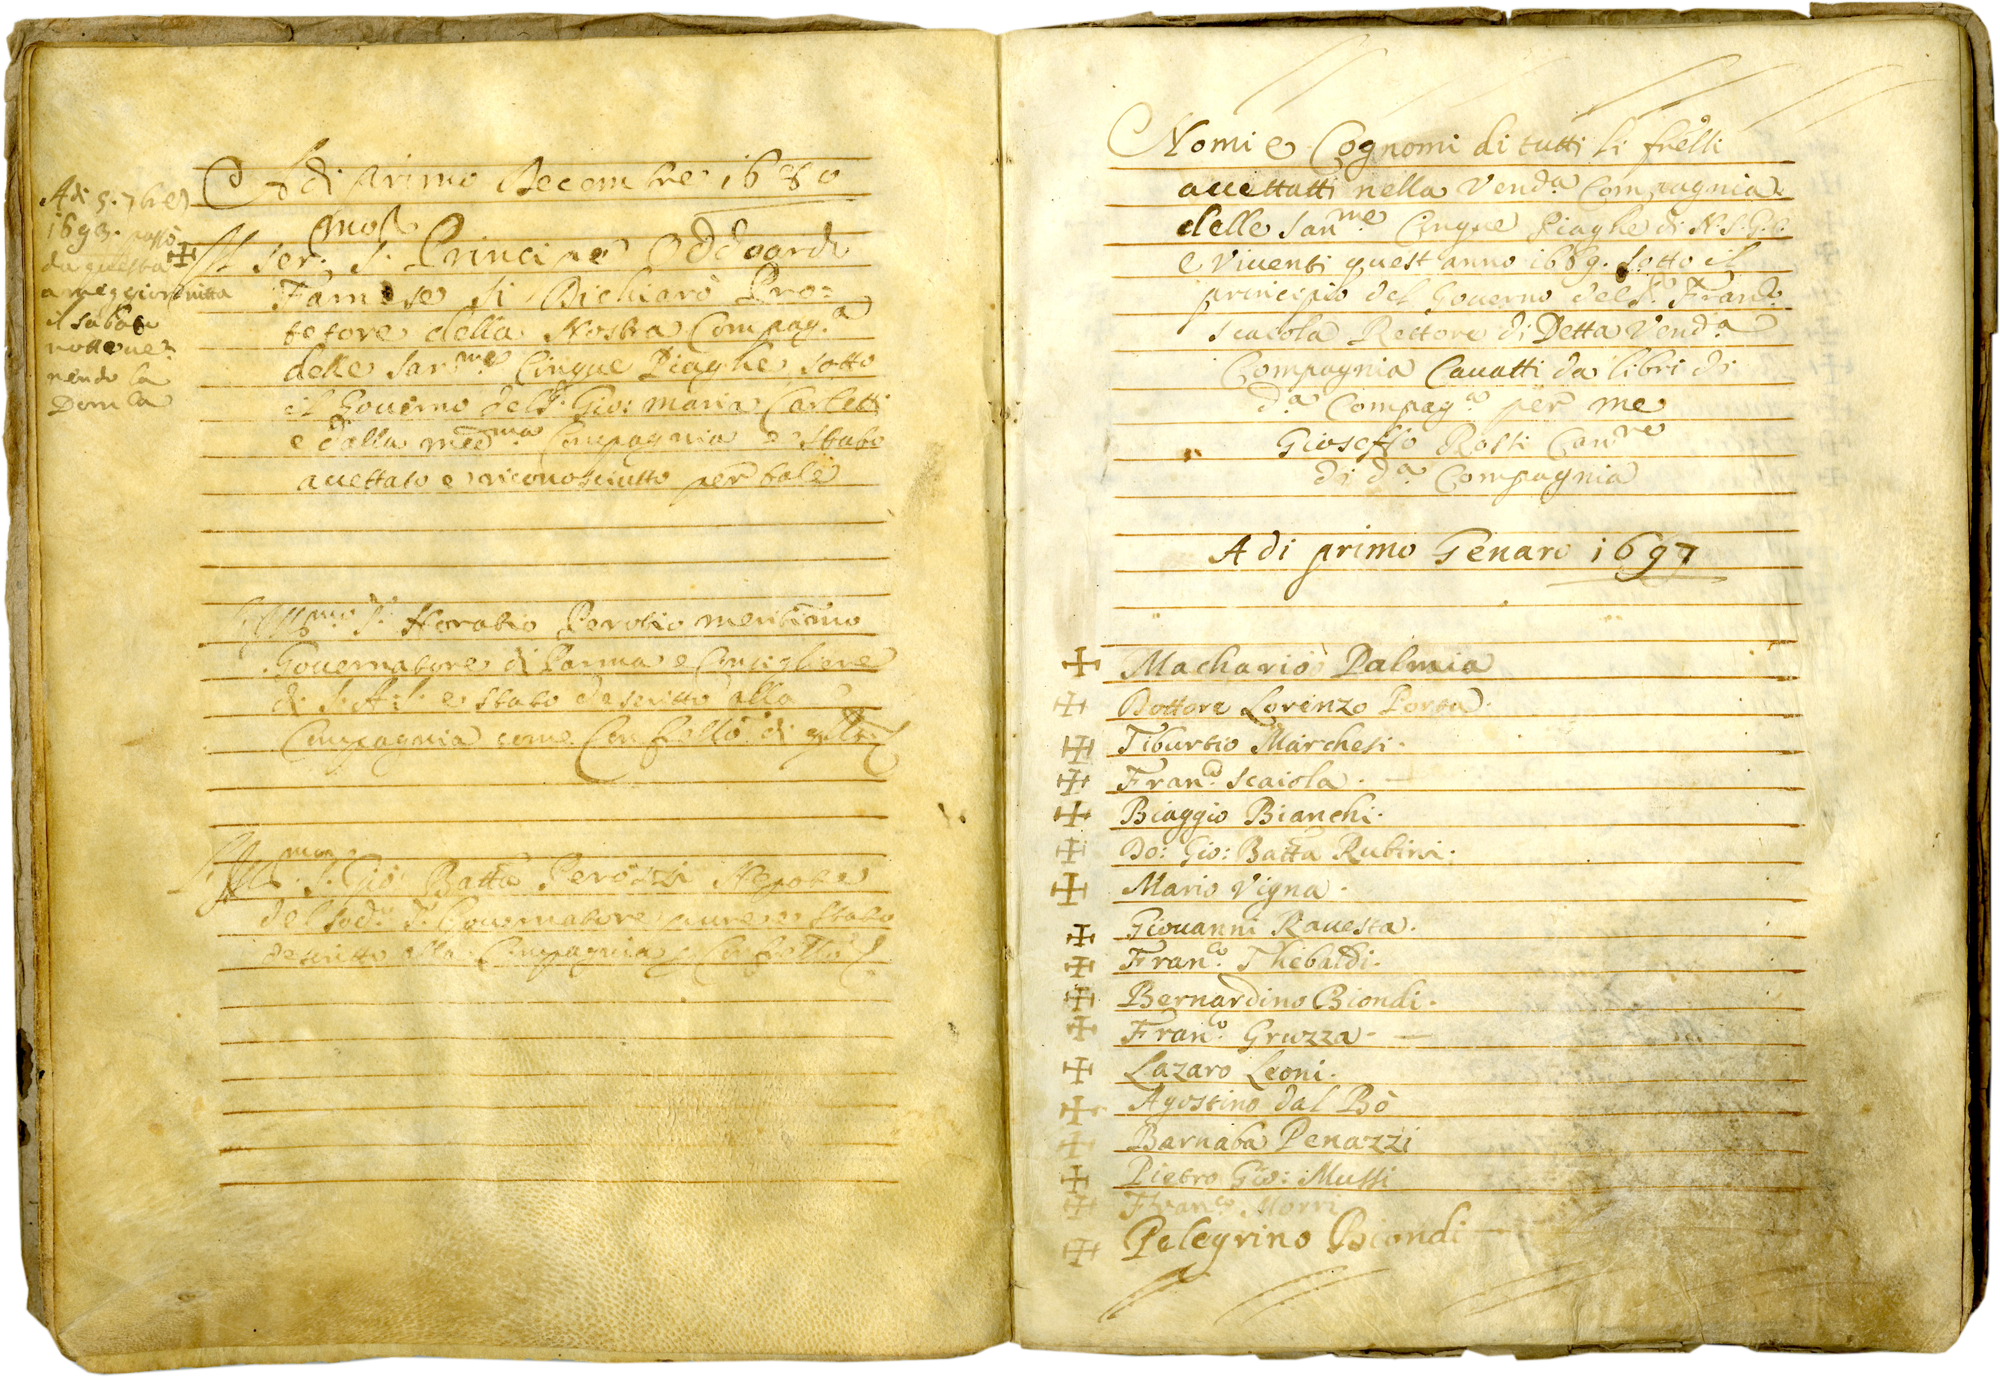 Adi primo Decembre 1680
Adi 5. 7bre
1693. passò
da questa
a meggior vitta
il sabato
notte ve=
nendo la
Domca
Il Ser.mo S. Principe Oddoardo
Farnese si Dichiarò Pro=
tetore della Nostra Compag.a
delle San.me Cinque Piaghe sotto
il Governo del S. Gio: Maria Carletti
e dalla med.ma Compagnia e stato
acettato e riconosciutto per tale
Ill.mo S. Horatio Perotio meritismo
Governatore di Parma e Consigliere
di S. A. S. e stato descritto alla
Compagnia come Confrello di
Ill.mo S. Gio: Batta Nepote
del sod.o S. Governatore pure e stato
descritto alla Compagnia p. Confrello
Nomi e Cognomi di tutti li frelli
acettatti nella Vend.a Compagnia
delle San.me Cinque Piaghe di N. S. G. C.
e viventi quest anno 1689. sotto il
principio del Governo del S. Fran.co
Scaiola Rettore di Detta Vend.a
Compagnia Cavatti da libri di
d.a Compag.a per me
Gioseffo Rossi Can.re
di d.a Compagnia
A di primo Genaro 1697
Machario Palmia
Dottore Lorenzo Porta.
Tiburtio Marchesi.
Fran.co Scaiola.
Biaggio Bianchi.
Do: Gio: Batta Rubini.
Mario Vigna.
Giovanni Ravesta.
Fran.co Thebaldi.
Bernardino Biondi.
Fran.co Gruzza.
Lazaro Leoni.
Agostino dal Bò
Barnaba Penazzi
Pietro Gio: Mussi
Fran.co Morri
Pelegrino Biondi